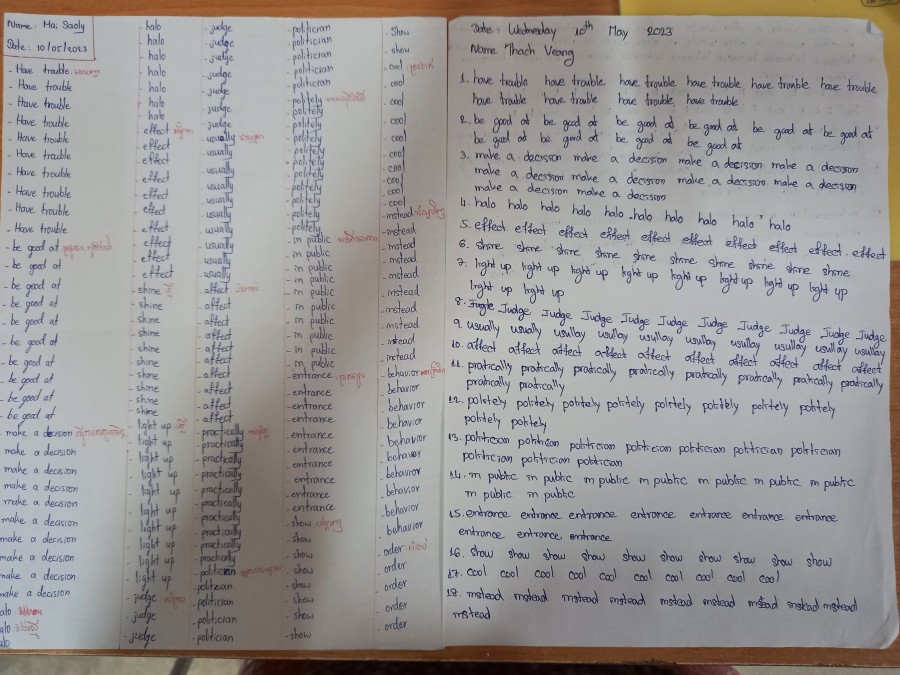 Name : Mai Saoly
Date : 10/05/2023
- Have trouble
- Have trouble
- Have trouble
- Have trouble
- Have trouble
- Have trouble
- Have trouble
- Have trouble
- Have trouble
- Have trouble
- be good at
- be good at
- be good at
- be good at
- be good at
- be good at
- be good at
- be good at
- be good at
- be good at
make a decision
make a decision
make a decision
make a decision
make a decision
make a decision
make a decision
make a decision
make a decision
make a decision
alo
alo
alo
halo
- halo
- halo
- halo
- halo
- halo
- halo
- effect
- effect
- effect
- effect
- effect
- effect
- effect
- effect
- effect
- shine
- shine
- shine
- shine
- shine
- shine
- shine
- shine
- light up
- light up
- light up
- light up
- light up
- light up
- light up
- light up
- light up
- judge
- judge
- judge
- judge
- judge
- judge
- judge
- judge
- judge
- judge
- usually
- usually
- usually
- usually
- usually
- usually
- usually
- usually
- affect
- affect
- affect
- affect
- affect
- affect
- affect
- affect
- affect
- practically
- practically
- practically
- practically
- practically
- practically
- practically
- practically
- politician
- politician
- politician
- politician
- politician
- politician
- politician
- politician
- politician
- politely
- politely
- politely
- politely
- politely
- politely
- politely
- politely
- politely
- in public
- in public
- in public
- in public
- in public
- in public
- in public
- in public
- entrance
- entrance
- entrance
- entrance
- entrance
- entrance
- entrance
- entrance
- show
- show
- show
- show
- show
- show
- show
- Show
- show
- cool
- cool
- cool
- cool
- cool
- cool
- cool
- cool
- instead
- instead
- instead
- instead
- instead
- instead
- instead
- instead
- instead
- behavior
- behavior
- behavior
- behavior
- behavior
- behavior
- behavior
- behavior
- behavior
- order
- order
- order
- order
- order
Date : Wednesday 10th May 2023
Name Thach Veang
1. have trouble have trouble have trouble have trouble have trouble have trouble
have trouble have trouble have trouble have trouble
2. be good at be good at be good at be good at be good at be good at
be good at be good at be good at be good at
3. make a decision make a decision make a decision make a decision
make a decision make a decision make a decision make a decision
make a decision make a decision
4. halo halo halo halo halo halo halo halo halo
5. effect effect effect effect effect effect effect effect effect effect
6. shine shine shine shine shine shine shine shine shine shine
7. light up light up light up light up light up light up light up light up
light up light up
8. Judge Judge Judge Judge Judge Judge Judge Judge Judge
9. usually usually usullay usullay usullay usullay usullay usullay usullay
10. affect affect affect affect affect affect affect affect affect affect
11. pratically pratically pratically pratically pratically pratically pratically pratically
pratically pratically
12. politely politely politely politely politely politely politely politely
politely politely
13. politician politician politician politician politician politician politician
politician politician politician
14. in public in public in public in public in public in public in public
in public in public
15. entrance entrance entrance entrance entrance entrance entrance
entrance entrance entrance
16. show show show show show show show show show
17. cool cool cool cool cool cool cool cool cool
18. instead instead instead instead instead instead instead instead instead
instead